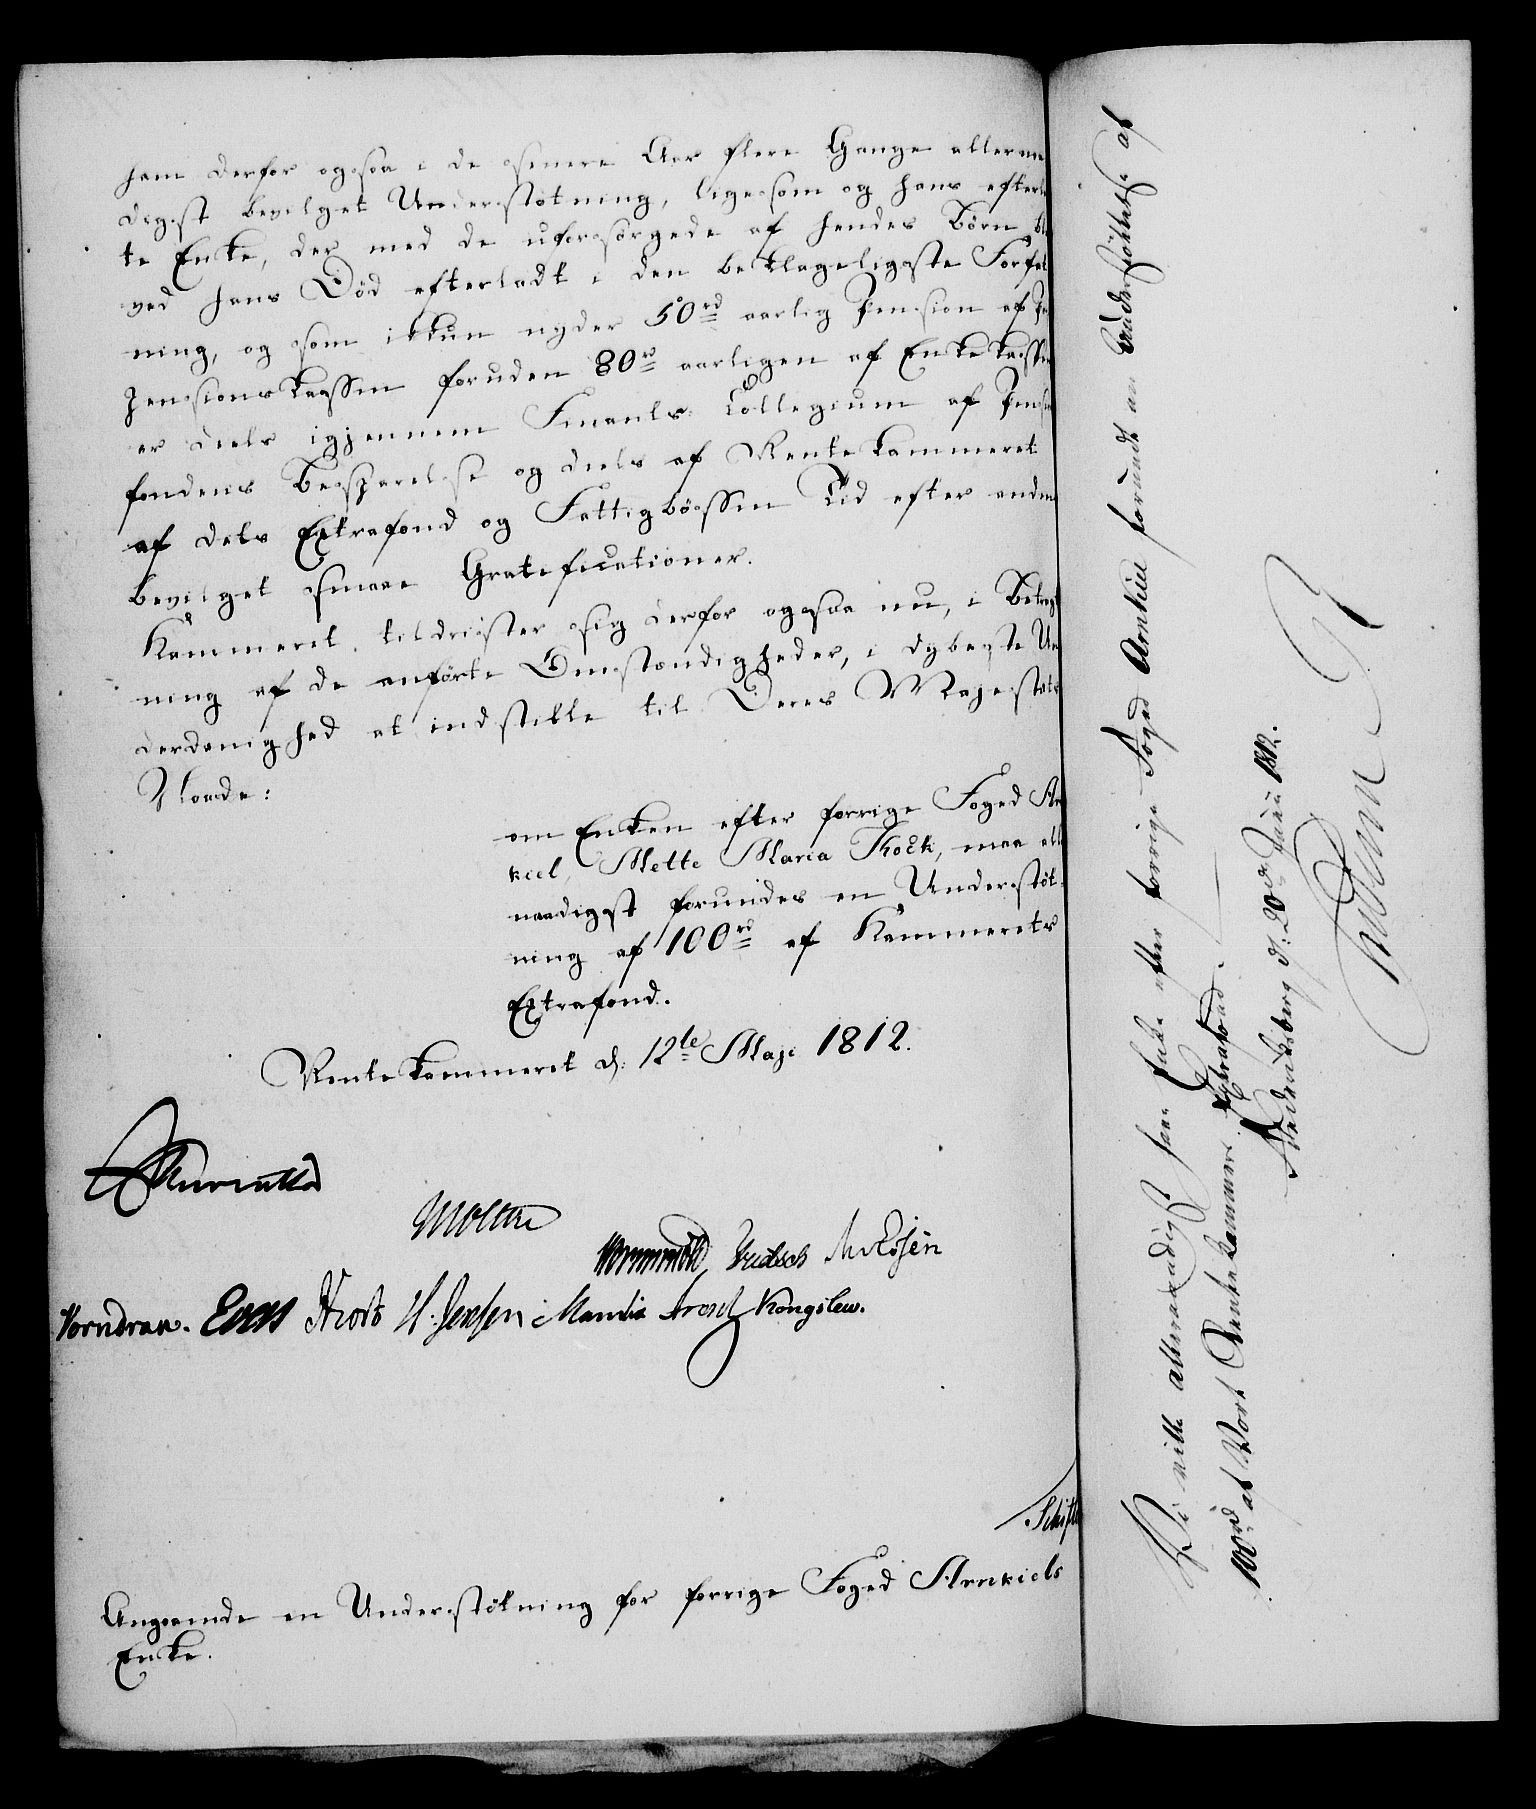 ham derfor ogsaa i de senere Aar flere Gange allernaa
digst bevilget Understøtning, ligesom og hans efterla
te Enke, der med de uforsørgede af hendes Børn bl
ved hans Død efterladt i den beklageligste Forfat
ning, og som ikkun nyder 50rd aarlig Pension af Po
Pensions Kassen foruden 80rd aarligen af Enke Kassen
er deels igjennem Finants Collegium af Pensio
fondens Besparelse og deels af Rente Kammeret
af dets Extrafond og Fattigbøssen Tid efter anden
bevilget smaae Gratificationer.
Kammeret tildrister sig derfor ogsaa nu, i Betragt
ning af de anførte Omstændigheder, i dybeste Un
derdanighed at indstille til Deres Majestæts
Naade:
om Enken efter forrige Foged Ar
kiel, Mette Maria Kock, maa all
naadigst forundes en Understøt-
ning af 100rd af Kammerets
Extrafond.
Rente Kammeret d. 12te Maji 1812.
Moltke
Wormskiold
Vorndran. Hiort H. Jensen Mandix Kongslew.
Schift
Angaaende en Understøtning for forrige Foged Arnkiels
Enke.
Vi ville allernaadigst have Enke efter forrige Foged Arnkiel forundt en Understøttelse af
100rd af Vort Rentekammers Extrafond.
Frederiksberg d: 20de Junii 1812.
Frederik R